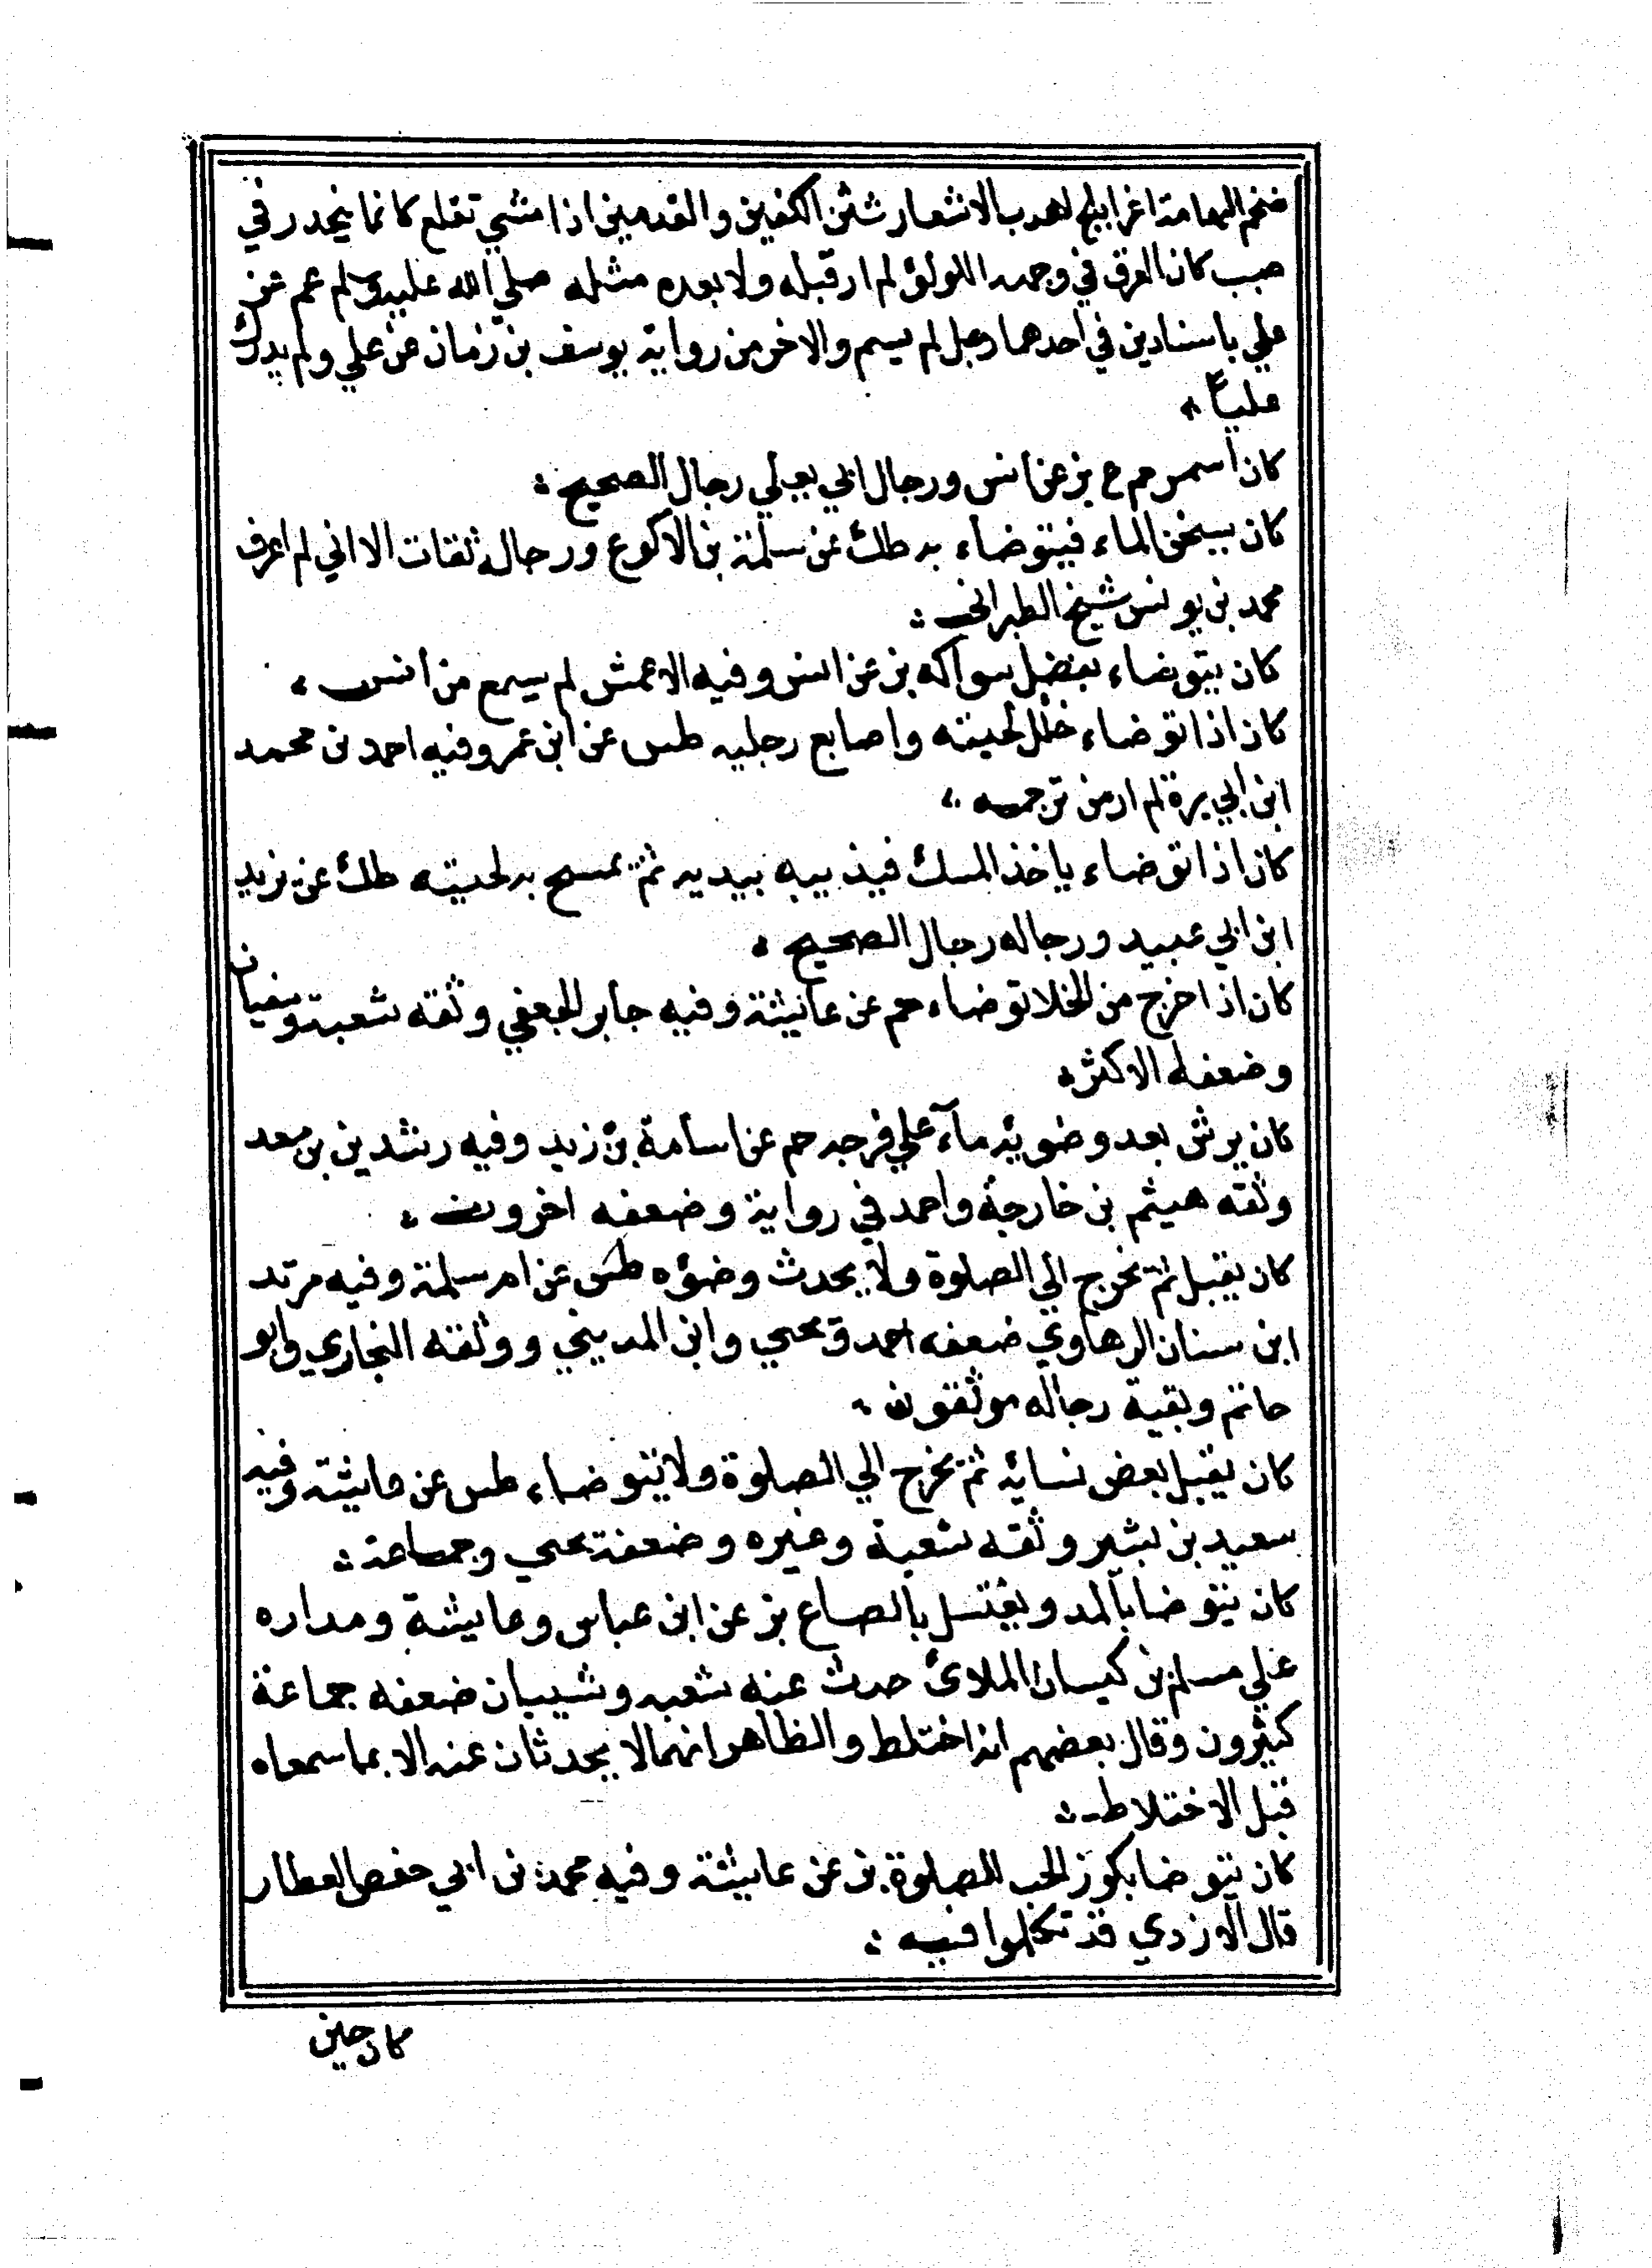 ضخم الهامة اغر ابلج اهدب الاشعار شثن الكفين والقدمين اذا مشي تقلع كانما ينحدر في
صبب كان العرق في وجهه اللولؤ لم ار قبله ولا بعده مثله صلي الله عليه وسلم عم عن
علي باسنادين في احدهما رجل لم يسم والاخر من رواية يوسف بن زمان عن علي ولم يدرك
علياً
كان اسمر حم ع بز عن انس ورجال ابي يعلي رجال الصحيح
كان يسخن الماء فيتوضاء به طك عن سلمة بن الاكوع ورجاله ثقات الا اني لم اعرف
محمد بن يونس شيخ الطبراني
كان يتوضاء بفضل سواكه بز عن انس وفيه الاعمش لم يسمع من انس
كان اذا توضاء خلل لحيته واصابع رجليه طس عن ابن عمر وفيه احمد بن محمد
ابن ابي بزة لم ار من ترجمه
كان اذا توضاء ياخذ المسك فيذيبه بيديه ثم يمسح به لحيته طك عن يزيد
ابن ابي عبيد ورجاله رجال الصحيح
كان اذا خرج من الخلا توضاء حم عن عائشة وفيه جابر الجعفي وثقه شعبة وسفيان
وضعفه الاكثر
كان يرش بعد وضويه مآء علي فرجه حم عن اسامة بن زيد وفيه رشدين بن سعد
وثقه هيثم بن خارجة واحمد في رواية وضعفه اخرون
كان يقبل ثم يخرج الي الصلوة ولا يحدث وضؤه طس عن ام سلمة وفيه مرتد
ابن سنان الرهاوي ضعفه احمد و يحيي وابن المديني ووثقه البخاري وابو
حاتم وبقية رجاله موثقون
كان يقبل بعض نسائه ثم يخرج الي الصلوة ولا يتوضاء طس عن عايشة وفيه
سعيد بن بشير وثقه شعبة وغيره وضعفه يحيي وجماعة
كان يتوضا بالمد ويغتسل بالصاع بز عن ابن عباس وعايشة ومداره
علي مسلم بن كيسان الملائ حدث عنه شعبه وشيبان ضعفه جماعة
كثيرون وقال بعضهم انه اختلط والظاهر انهما لا يحدثان عنه الا بما سمعاه
قبل الاختلاط
كان يتوضا بكوز الحب للصلوة بز عن عايشة وفيه محمد بن ابي حفص العطار
قال الازدي قد تكلموا فيه
كان حين